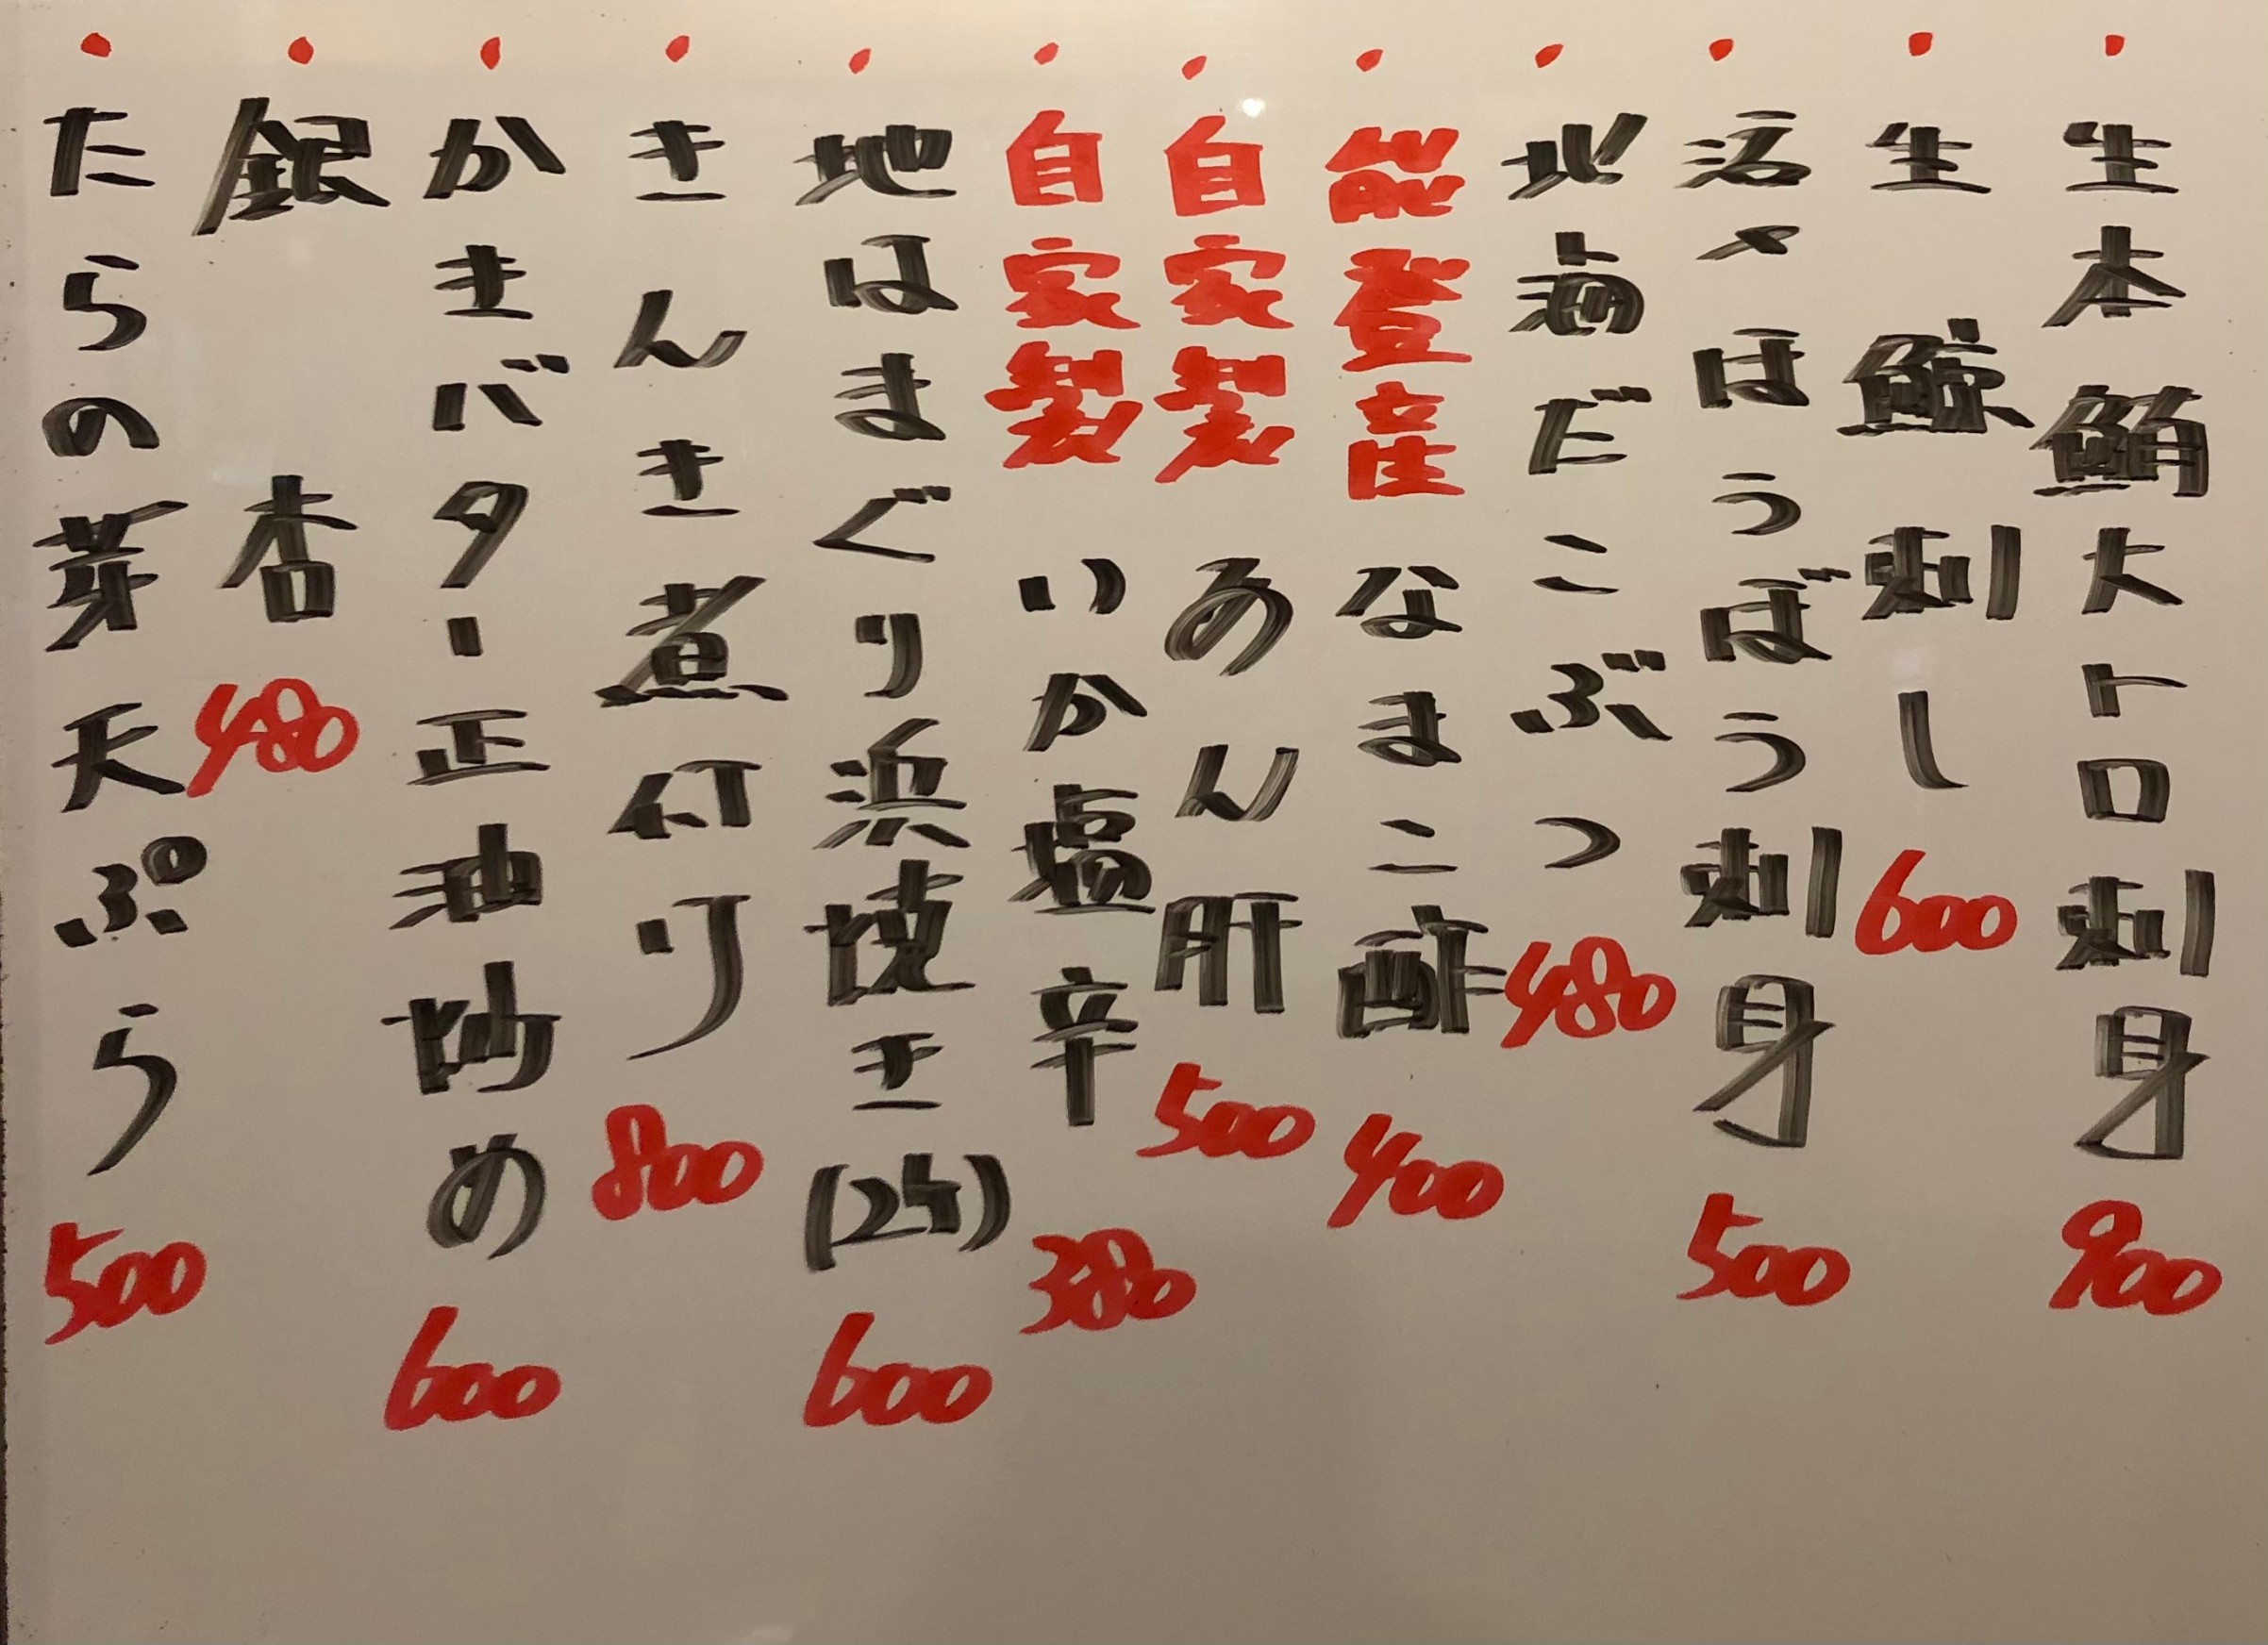 ・生本鮪大トロ刺身 900
・生鯨刺し 600
・活〆ほうぼう刺身 500
・北海だこぶつ 480
・能登産 なまこ酢 400
・自家製 あん肝 500
・自家製 いか塩辛 380
・地はまぐり浜焼き(2ケ) 600
・きんき煮付け 800
・かきバター正油炒め 600
・銀杏 480
・たらの芽天ぷら 500